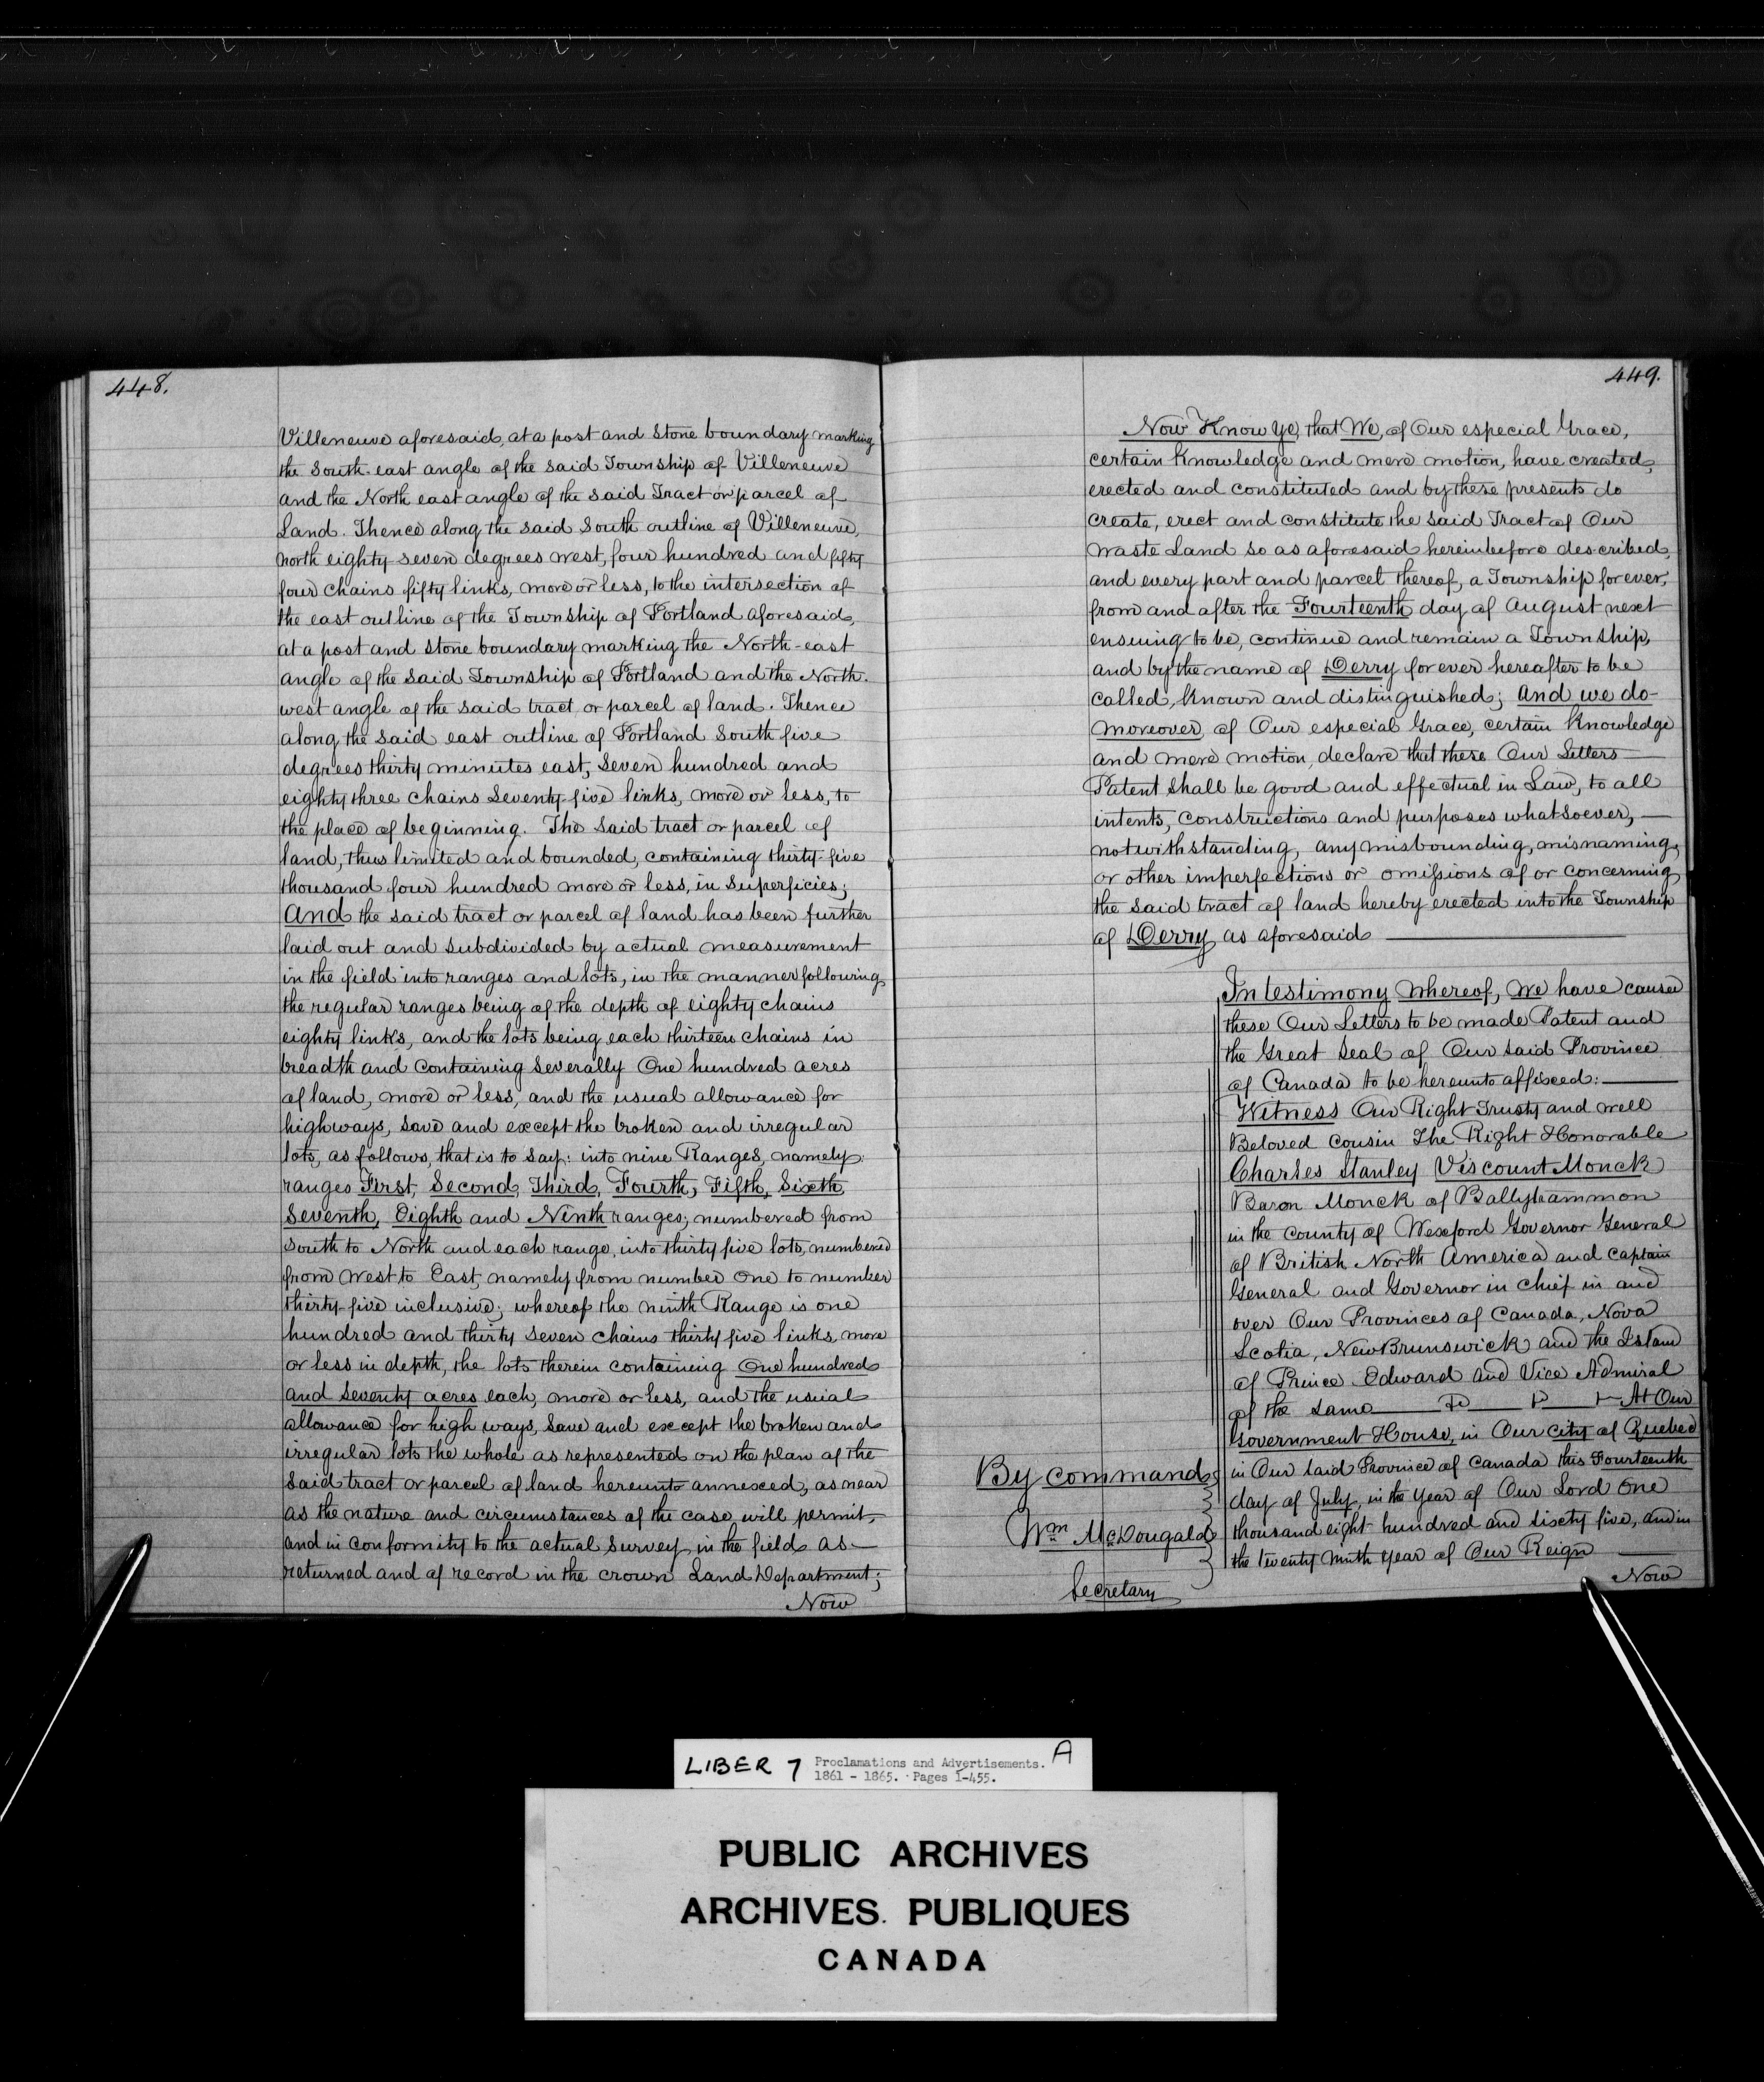 448.
Villeneuve aforesaid, at a post and Stone boundary marking
the South-east angle of the said Township of Villeneuve
and the North east angle of the said Tract or parcel of
Land. Thence along the said South outline of Villeneuve,
North eighty seven degrees west, four hundred and fifty
four chains fifty links, more or less, to the intersection of
the east outline of the Township of Portland aforesaid,
at a post and stone boundary marking the North-east
angle of the said Township of Portland and the North-
west angle of the said tract or parcel of land. Thence
along the said east outline of Portland South five
degrees thirty minutes east, Seven hundred and
eighty three chains Seventy-five links, more or less, to
the place of beginning. The said tract or parcel of
land, thus limited and bounded, containing thirty-five
thousand four hundred more or less, in Superficies;
And the said tract or parcel of land has been further
laid out and subdivided by actual measurement
in the field into ranges and lots, in the manner following,
the regular ranges being of the depth of eighty chains
eighty links, and the lots being each thirteen chains in
breadth and containing severally One hundred acres
of land, more or less, and the usual allowance for
highways, save and except the broken and irregular
lots, as follows, that is to say: into nine Ranges, namely:
ranges First, Second, Third, Fourth, Fifth, Sixth,
Seventh, Eighth and Ninth ranges; numbered from
South to North and each range, into thirty five lots, numbered
from West to East, namely from number One to number
thirty-five inclusive; whereof the ninth Range is one
hundred and thirty seven chains thirty five links, more
or less in depth, the lots therein containing One hundred
and seventy acres each, more or less, and the usual
allowance for high ways, save and except the broken and
irregular lots the whole as represented on the plan of the
said tract or parcel of land hereunto annexed, as near
as the nature and circumstances of the case will permit,
and in conformity to the actual survey in the field as
returned and of record in the Crown Land Department;
Now
449.
Now Know Ye, that We, of Our especial Grace,
certain Knowledge and mere motion, have created,
erected and constituted and by these presents do
create, erect and constitute the said Tract of Our
Waste Land so as aforesaid hereinbefore described,
and every part and parcel thereof, a Township for ever,
from and after the Fourteenth day of August next
ensuing to be, continue and remain a Township,
and by the name of Derry for ever hereafter to be
called, known and distinguished; And we do
moreover of Our especial Grace, certain Knowledge
and mere motion, declare that these Our Letters
Patent shall be good and effectual in Law, to all
intents, constructions and purposes whatsoever,
notwithstanding, any misbounding, misnaming,
or other imperfections or omissions of or concerning
the said tract of land hereby erected into the Township
of Derry as aforesaid
In testimony Whereof, We have caused
these Our Letters to be made Patent and
the Great Seal of Our said Province
of Canada to be hereunto affixed:
Witness Our Right Trusty and well
Beloved Cousin The Right Honorable
Charles Stanley Viscount Monck
Baron Monck of Ballytrammon
in the county of Wexford Governor General
of British North America and Captain
General and Governor in Chief in and
over Our Provinces of Canada, Nova
Scotia, New Brunswick and the Island
of Prince Edward and Vice Admiral
of the same At Our
Government House, in Our City of Quebec
in Our said Province of Canada this Fourteenth
day of July, in the Year of Our Lord one
thousand eight hundred and sixty five, and in
the twenty ninth year of Our Reign
Now
By command
Wm McDougald
Secretary
LIBER 7 Proclamations and Advertisements. A
1861 - 1865. Pages 1-455.
PUBLIC ARCHIVES
ARCHIVES PUBLIQUES
CANADA